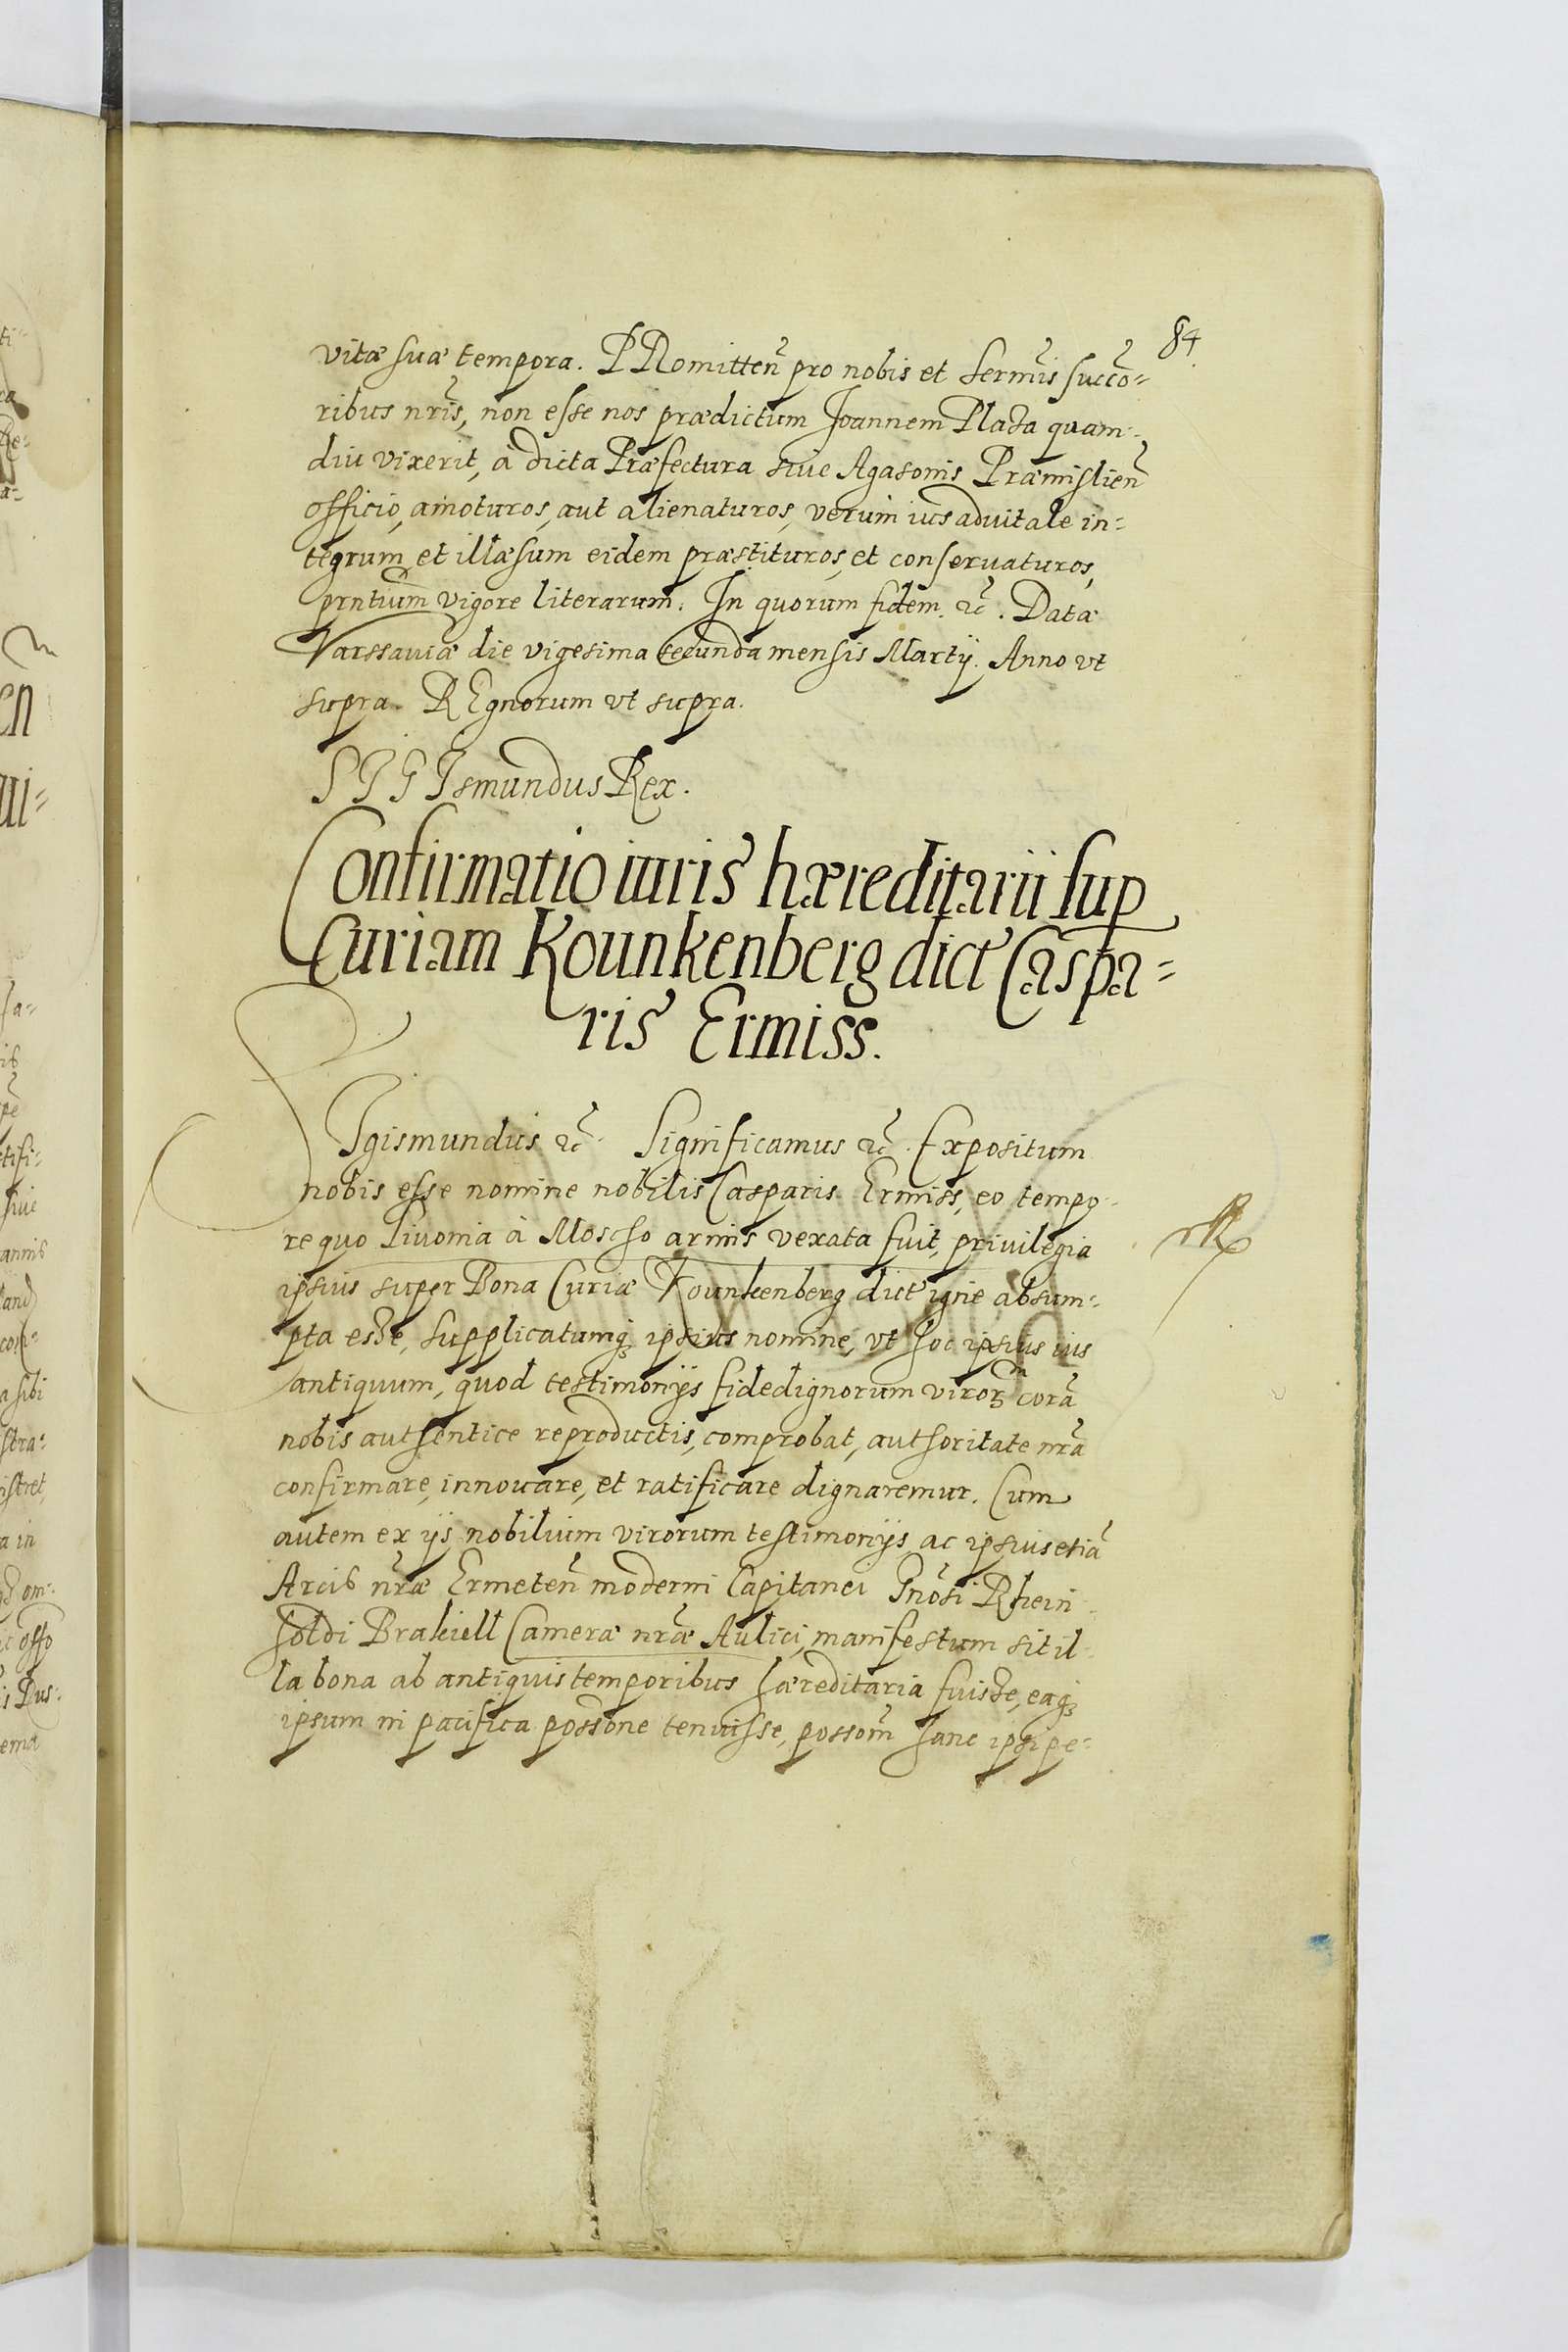 84
vitæ suæ tempora. PRomitten̄ pro nobis et Serm̄is succō=
ribus nr̄is, non esse nos prædictum Joannem Plaza quam=
diu vixerit, à dicta Præfectura siue Agasonis Præmislien̄
officio, amoturos, aut alienaturos, verum ius aduitale in=
tegrum et illæsum eidem præstituros, et conseruaturos,
prn̄tium vigore literarum. In quorum fidem &c̄. Data
Varssauiæ die vigesima secunda mensis Martÿ. Anno vt
supra. REgnorum vt supra.
SIGIsmundus Rex.
Confirmatio iuris hæreditarii sup
Curiam Kounkenberg dict Caspa=
ris Ermiss.
SIgismundus &c̄. Significamus &c̄. Expositum
nobis esse nomine nobilis Casparis Ermiss, eo tempo=
re quo Liuonia à Moscho armis vexata fuit, priuilegia
ipsius super Bona Curiæ Kounkenberg dict igne absum=
pta esse, supplicatumq; ipsius nomine, vt hoc ipsius ius
antiquum, quod testimonÿs fidedignorum viroꝝ corā
nobis authentice reproductis, comprobat, authoritate nr̄a
confirmare, innouare, et ratificare dignaremur. Cum
autem ex ÿs nobilium virorum testimonÿs ac ipsius etiā
Arcis nr̄æ Ermeten̄ moderni Capitanei Gn̄osi Rhein=
holdi Brakiell Cameræ nr̄æ Aulici, manifestum sit il=
la bona ab antiquis temporibus hæreditaria fuisse, eaq;
ipsum in pacifica possōne tenuisse, possōm̄ hanc ipsi pe=